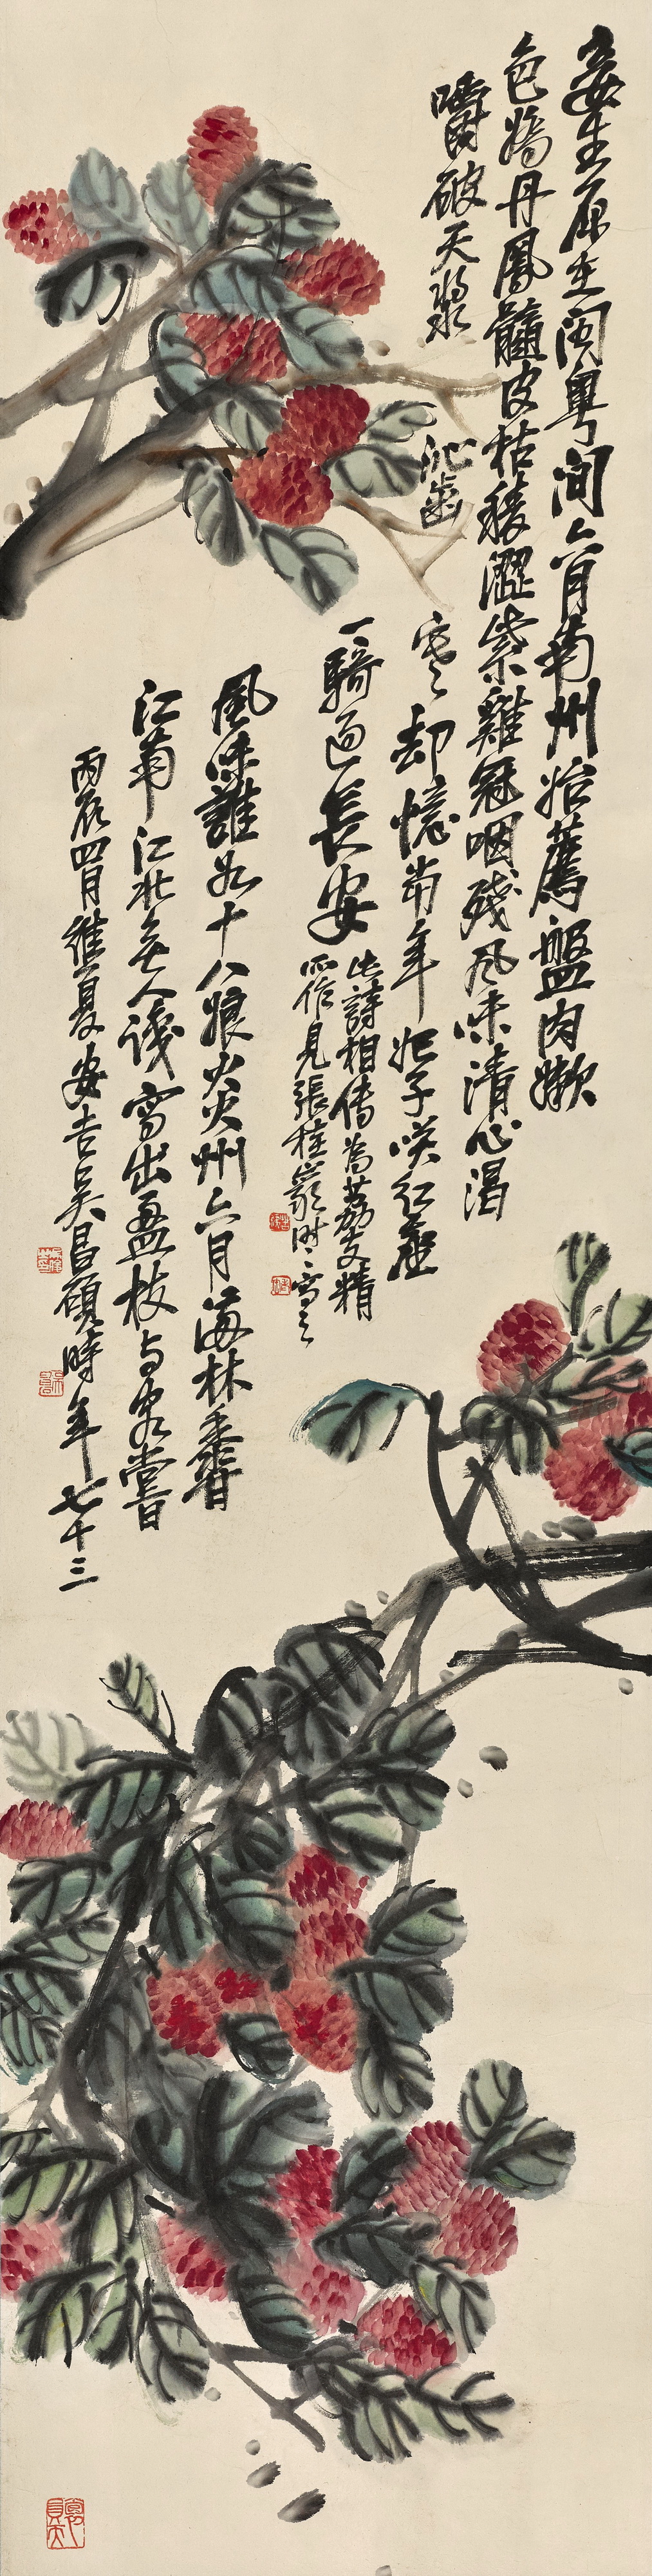 妾生原在閩粵間六月南州始薦盤肉嫩
色嬌丹鳳髓皮枯稜澀紫雞冠咽殘風味清心渴
嚼破天漿沁齒寒却憶當年妃子咲紅塵
一騎過長安
此詩相傳為荔支精
所作見張桂巖時時寫之
風味誰如十八娘炎州六月海林香
江南江北無人識寫出盈枝與客嘗
丙辰四月維夏安吉吳昌碩時年七十三